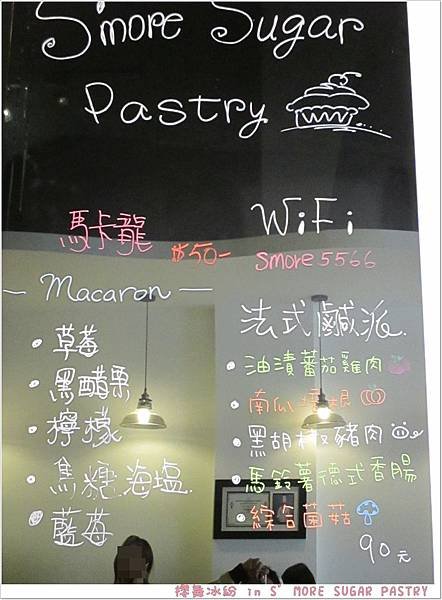 S'more Sugar
Pastry
馬卡龍 $50-
Macaron
• 草莓
• 黑醋栗
• 檸檬
• 焦糖海塩
• 藍莓
WiFi
Smore5566
法式鹹派
• 油漬蕃茄雞肉
• 南瓜培根
• 黑胡椒豬肉
• 馬鈴薯德式香腸
• 綜合菌菇
90元
櫻舞冰紛 in S' MORE SUGAR PASTRY